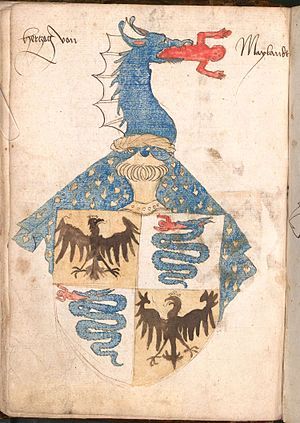 Hertzog von
Maylandt